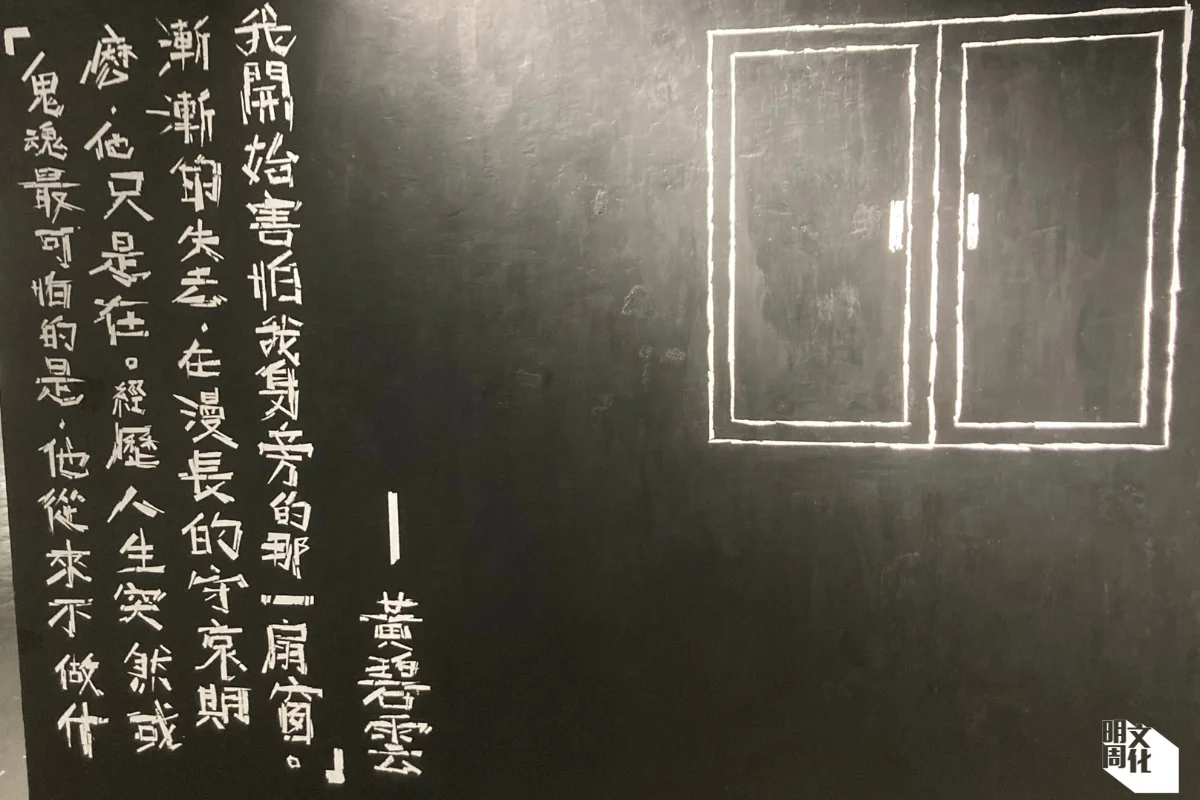 「鬼魂最可怕的是．他從來不做什
麼．他只是在。經歷人生突然或
漸漸的失去．在漫長的守哀期
我開始害怕我身旁的那一扇窗。」
—黃碧雲
明周文化